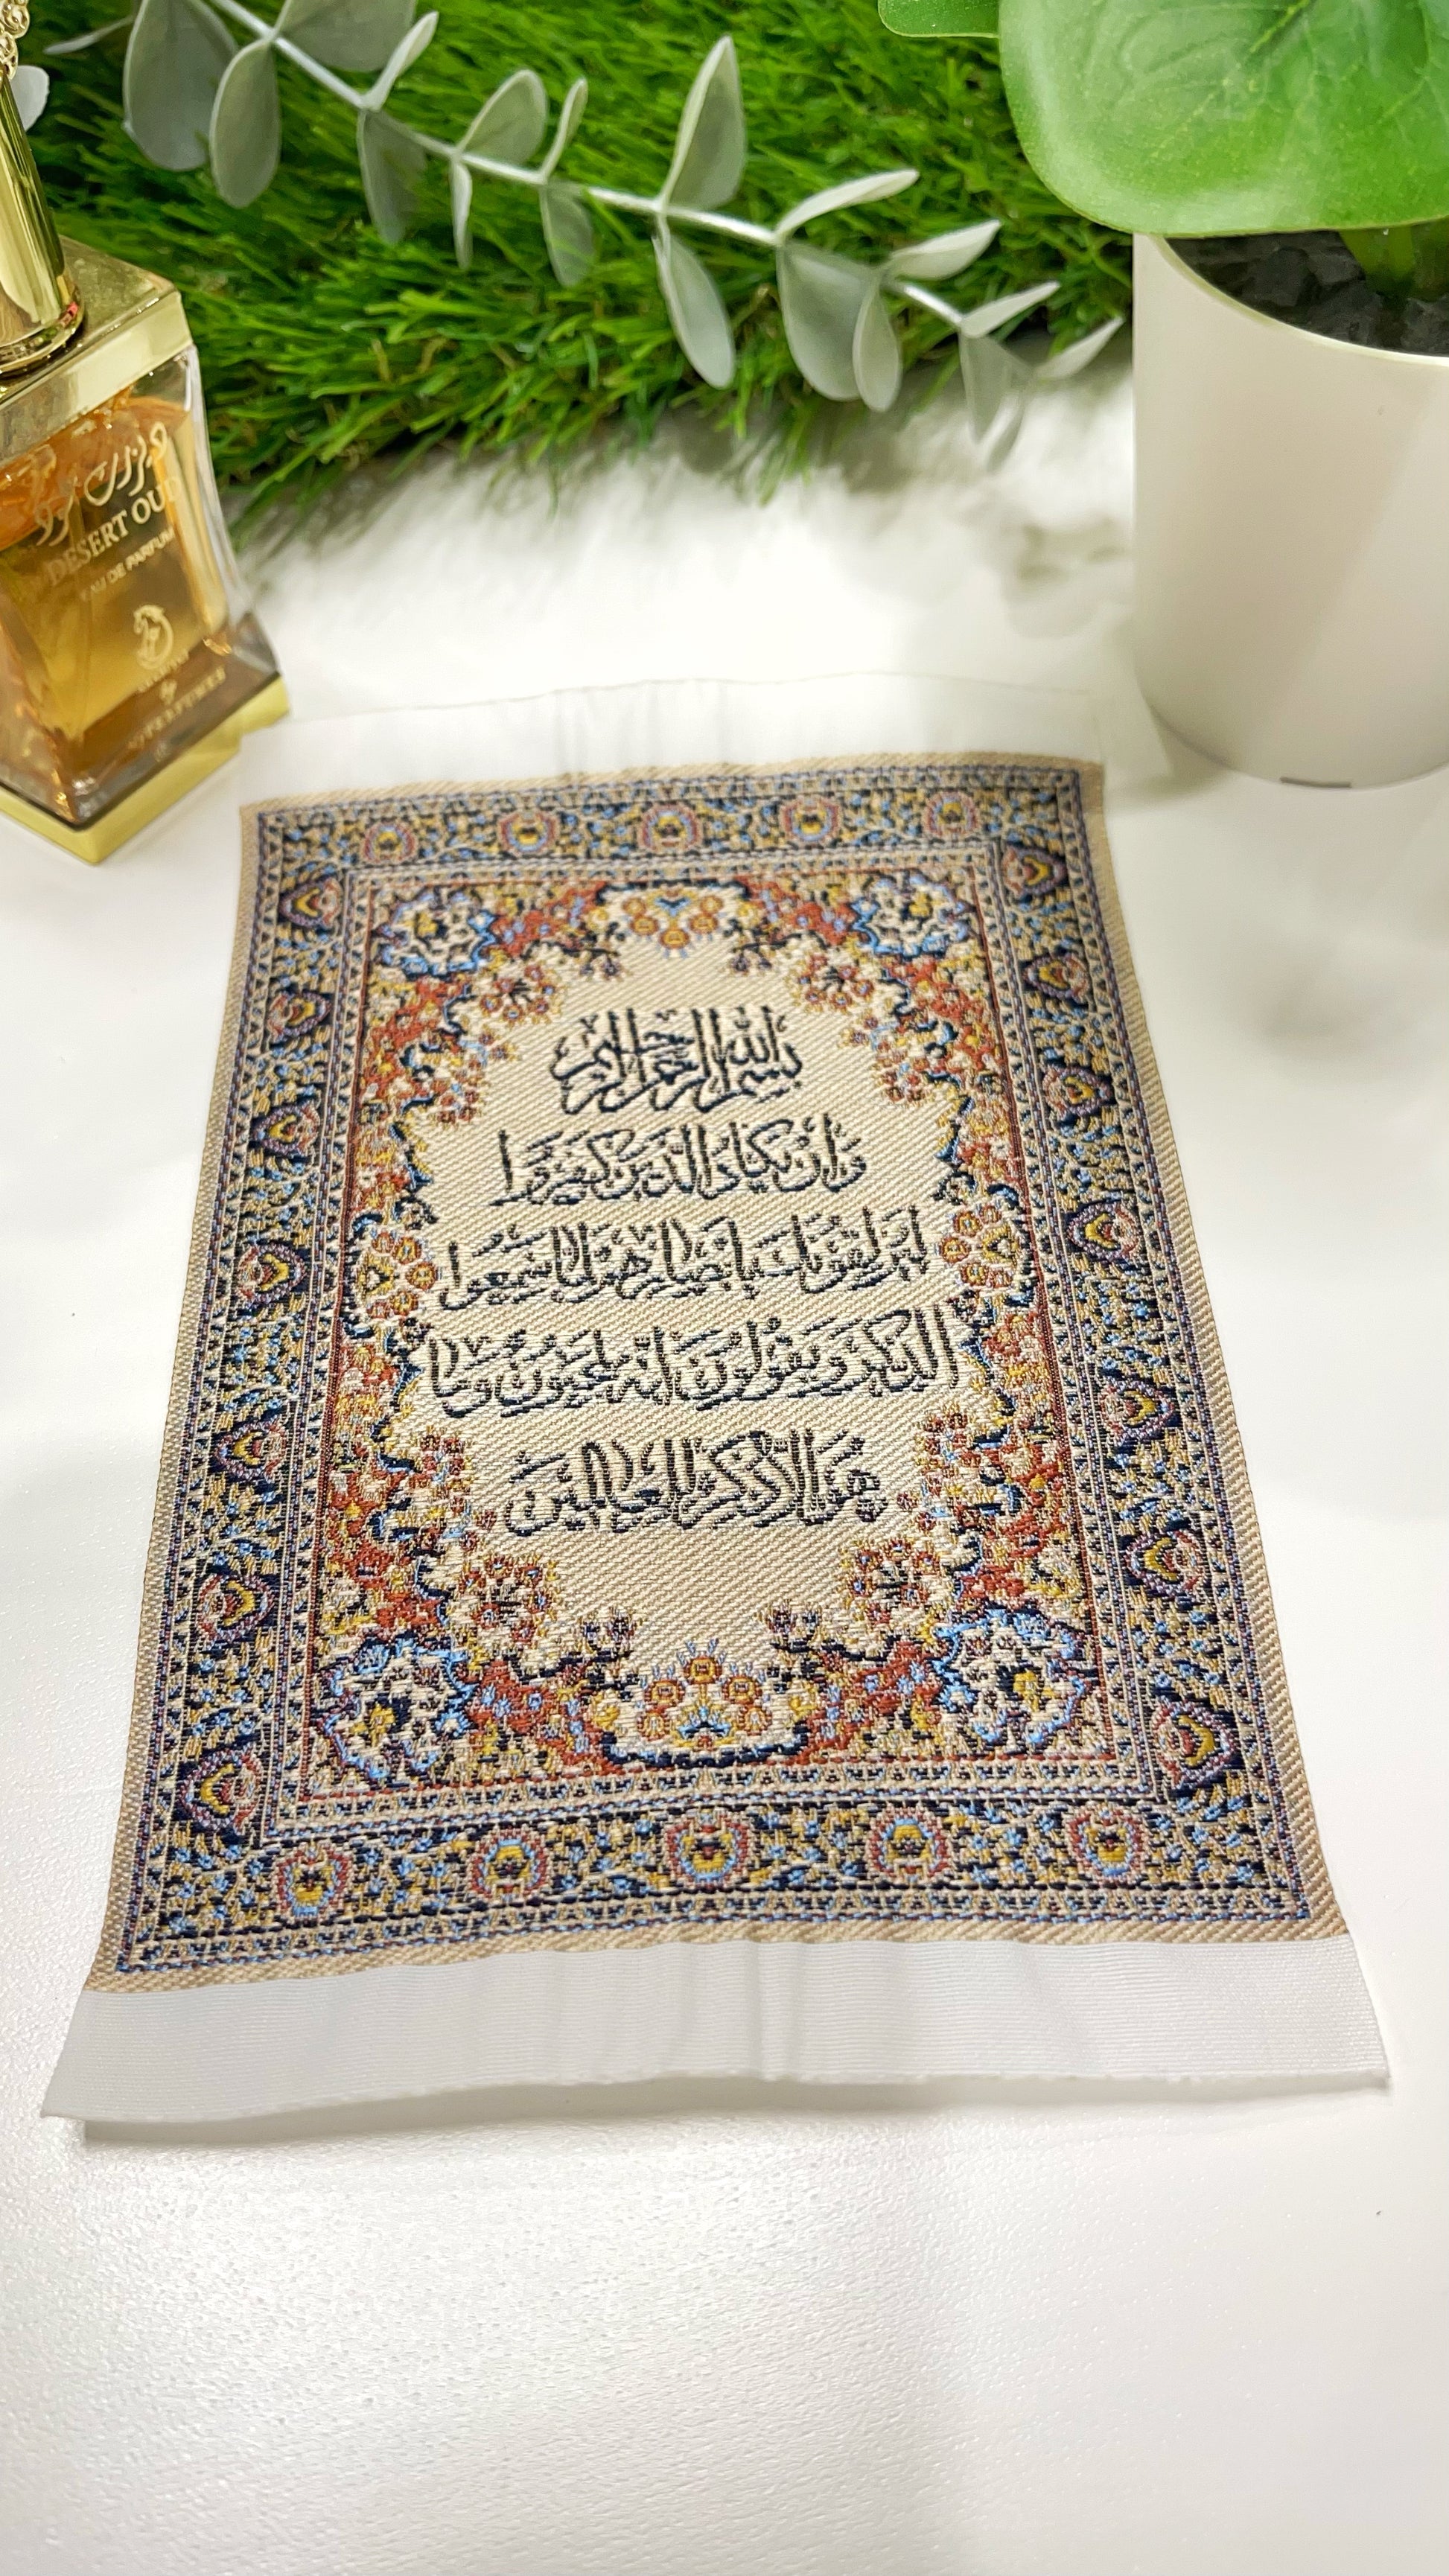 DESERT OUD
EAU DE PARFUM
بسم الله الرحمن الرحيم
وَإِنْ يَكَادُ الَّذِينَ كَفَرُوا
لَيُزْلِقُونَكَ بِأَبْصَارِهِمْ لَمَّا سَمِعُوا
الذِّكْرَ وَيَقُولُونَ إِنَّهُ لَمَجْنُونٌ وَمَا
هُوَ إِلَّا ذِكْرٌ لِلْعَالَمِينَ